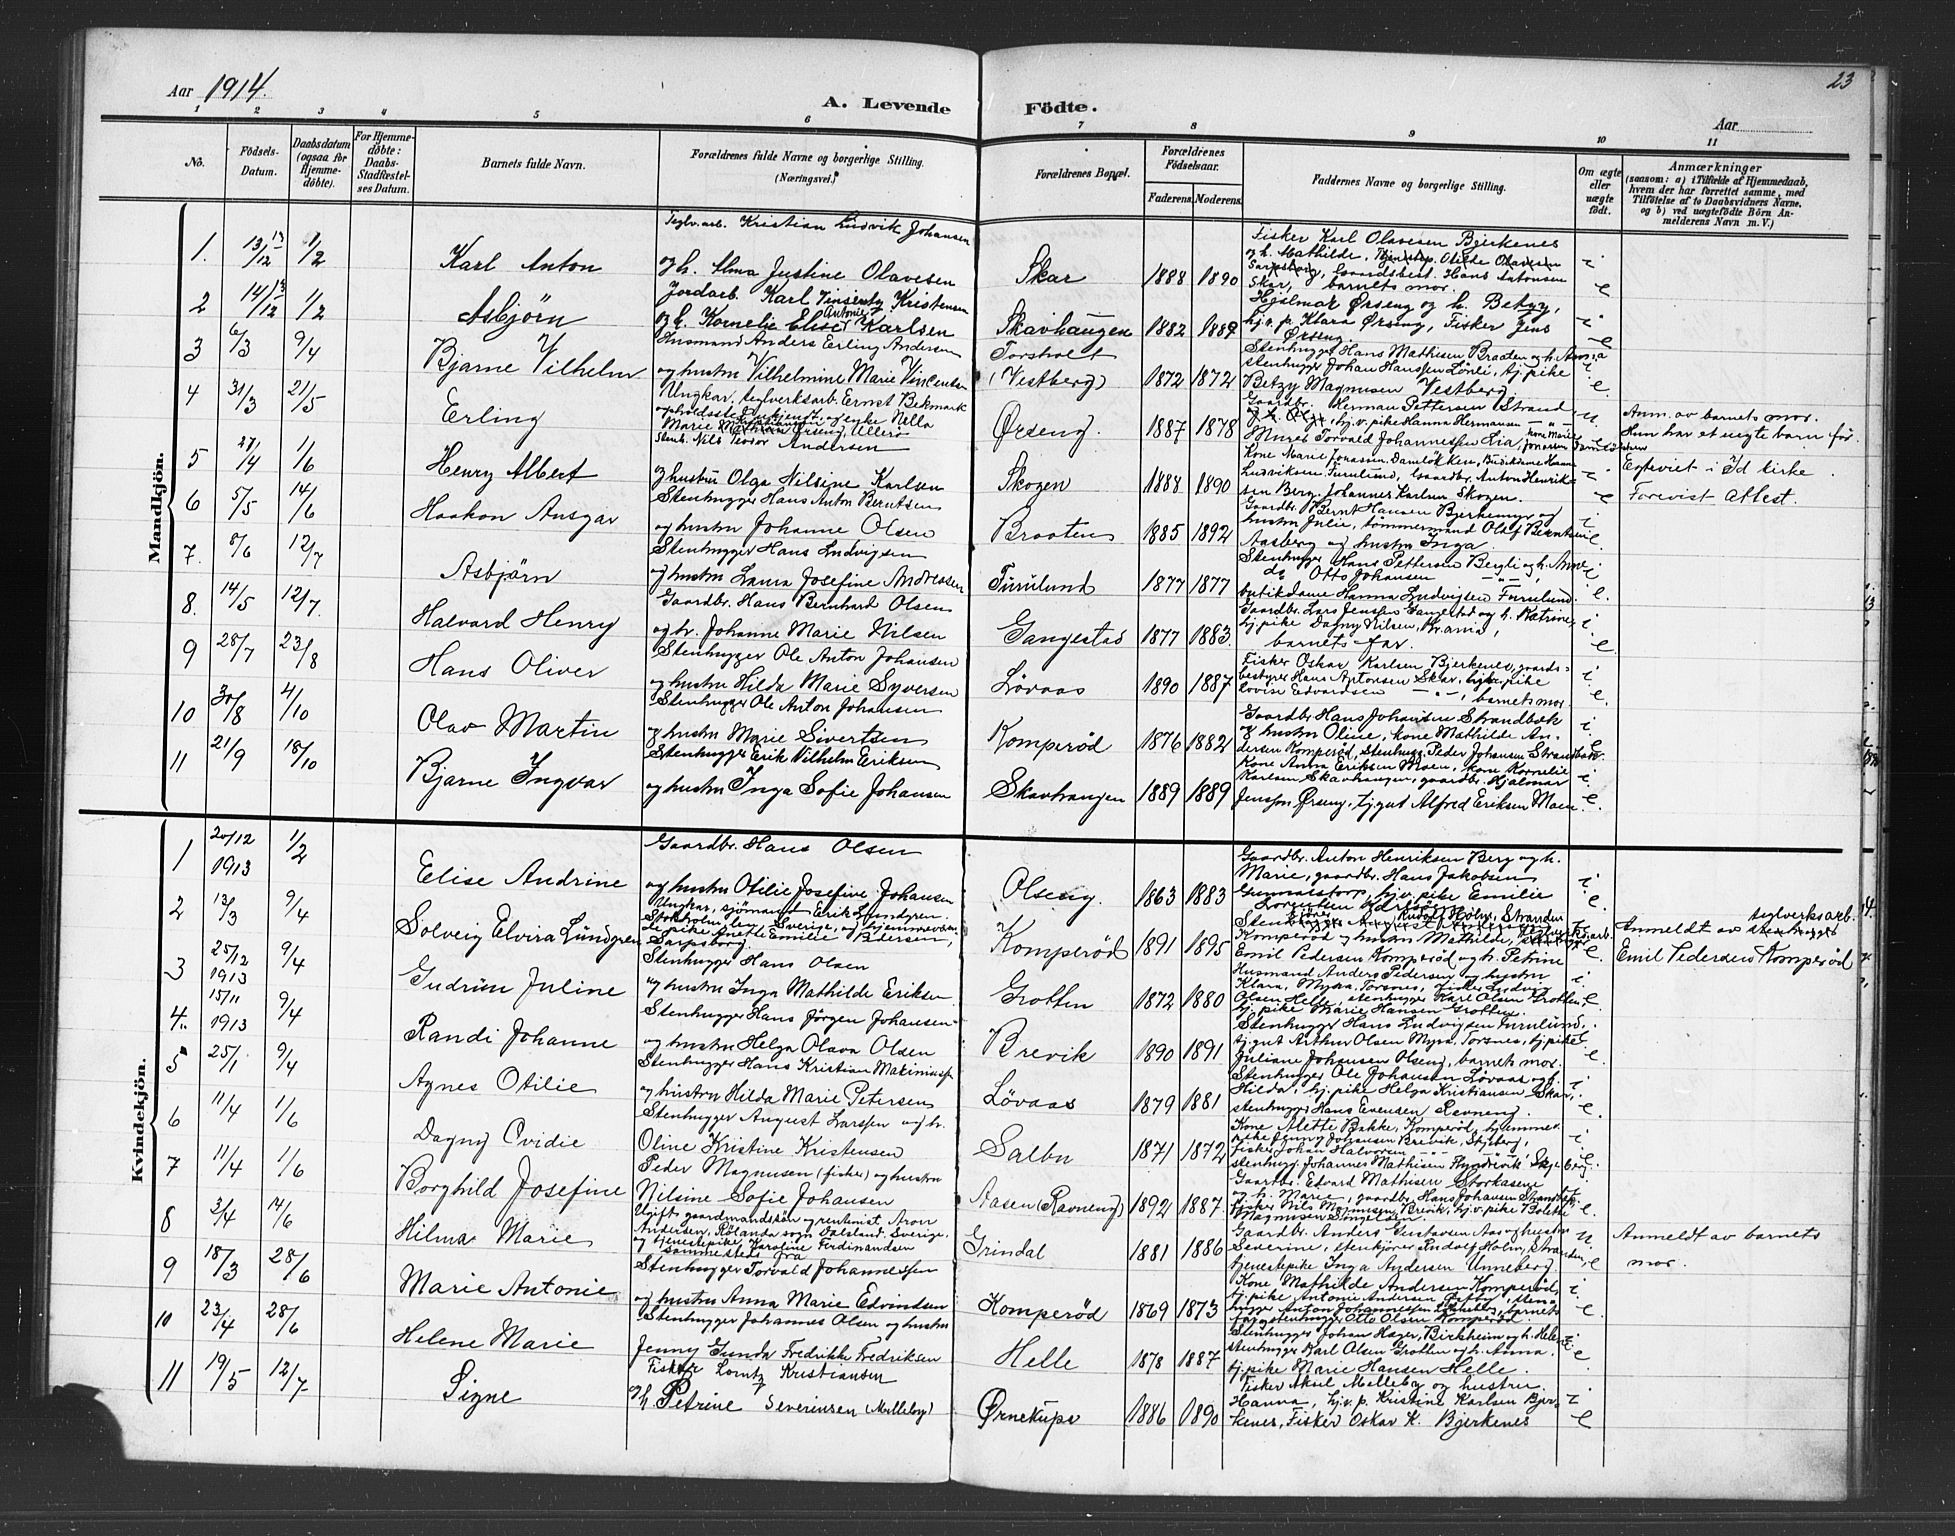 Aar 1914.
A. Levende Födte.
Aar
23
1 2 3 4 5 6 7 8 9 10 11
No.
Födsels-Datum.
Daabsdatum (ogsaa for Hjemmedöbte).
For Hjemmedöbte: Daabs-Stadfæstelses Datum.
Barnets fulde Navn.
Forældrenes fulde Navne og borgerlige Stilling. (Næringsvei.)
Forældrenes Bopæl.
Forældrenes Födselsaar.
Faderens. Moderens.
Faddernes Navne og borgerlige Stilling.
Om ægte eller uægte födt.
Anmærkninger
(saasom: a) i Tilfælde af Hjemmedaab, hvem der har forrettet samme, med Tilföielse af to Daabsvidners Navne, og b) ved uægtefödte Börn Anmelderens Navn m. V.)
Mandkjön.
1. 13/12 13 1/2 Karl Anton
Teglv.arb. Kristian Ludvik Johansen
og h. Alma Justine Olavesen
Skar 1888 1890
Fisker Karl Olavesen Bjerkenes
og h. Mathilde, Otilde Olavesen
Sarpsborg, Gaardsbest. Hans Antonsen
Skar, barnets mor.
2 14/12 13 1/2 Asbjörn
Jordarb. Karl Vinsentz Kristensen
og h. Kornelie Elise Antonie Karlsen
Skavhaugen 1882 1889
Hjalmar Ørseng og h. Betzy,
hj.v.p. Klara Ørseng, Fisker Jens
Ørseng
3 6/3 9/4 Bjarne Vilhelm
Husmand Anders Erling Andersen
og hustru Vilhelmine Marie Vincentsen
Torsholt
(Vestberg) 1872 1872
Stenhugger Hans Mathisen Braaten og h. Anna
stenhugger Johan Hanssen Lönli, tj.pike
Betzy Magnusen Vestberg
4 31/3 21/5 Erling
Ungkar, teglverksarb. Ernst Bekmark
opholdssted ubekjendt, og pike Nella
Marie Ørseng, Ullerø
Ørseng. 1887 1878
Gaardbr. Herman Pettersen Strand
og h. Olga, hj.v.pike Hanna Hermansen
Anm. av barnets mor.
Hun har et uegte barn för
5 27/4 1/6 Henry Albert
Stenh. Nils Teodor Andersen
og hustru Olga Nilsine Karlsen
Skogen 1888 1890
Murer Torvald Johannessen Lia, kone Marie
Kone Marie Jonassen Damløkken,
Ludviksen Furulund, Gaardbr. Anton Henriksen
Berg, Johannes Karlsen Skogen.
Egteviet i Id kirke
Forevist Attest.
6 5/5 14/6 Haakon Ansgar
Stenhugger Hans Anton Berntsen
og hustru Johanne Olsen
Braaten 1885 1892
Gaardbr. Bernt Hansen Bjerkemyr og
hustru Julie, tömmermand Olaf Berntsen
Aasberg og hustru Inga
7. 8/6 12/7 Asbjörn
Stenhugger Hans Ludvigsen
og hustru Laura Josefine Andressen
Furulund 1877 1877
Stenhugger Hans Pettersen Bergli og h. Anne
do Otto Johansen
butikdame Hanna Ludvigsen Furulund.
8. 14/5 12/7 Halvard Henry
Gaardbr. Hans Bernhard Olsen
og h. Johanne Marie Nilsen
Gangestad 1877 1883.
Gaardbr. Lars Jensen Gangestad og h. Katrine,
hj.pike Dagny Nilsen, Kraniø,
barnets far.
9 28/7 23/8 Hans Oliver
Stenhugger Ole Anton Johansen
og hustru Hilda Marie Syversen
Lövaas 1890 1887
Fisker Oskar Karlsen Bjerkenes, gaards-
bestyrer Hans Antonsen Skar, pike
Lovise Edvardsen, barnets mor.
10 30/8 4/10 Olav Martin
Stenhugger Ole Anton Johansen
og hustru Marie Sivertsen
Komperöd 1876 1882
Gaardbr. Hans Johansen Strandbæk
og hustru Oline, kone Mathilde An-
dersen Komperöd, stenhugg. Peder Johansen Strandbæk
11 21/9 18/10 Bjarne Ingvar
Stenhugger Erik Vilhelm Eriksen
og hustru Inga Sofie Johansen
Skavhaugen 1889 1889
Kone Anna Eriksen Moen, kone Kornelie
Karlsen Skavhaugen, gaardbr. Hjalmar
Jenssen Ørseng, tj.gut Alfred Eriksen Moen
Kvindekjön.
1 20/12 1913 1/2 Elise Andrine
Gaardbr. Hans Olsen
og hustru Otilie Josefine Johansen
Olseng. 1863 1883
Gaardbr. Anton Henriksen Berg og h.
Marie, gaardbr. Hans Jakobsen
Gunnarstorp, hj.v.pike Emilie
Lorentsen
2 13/3 9/4 Solveig Elvira Lundgren
Ungkar, sjömand Erik Lundgren
Stokholm len, Sverige, og hjemmeværende
pike Anette Emilie Pedersen,
Sarpsborg
Komperöd 1891 1895
Rudolf Holm, Stranden
Komperöd og hustru Mathilde, teglverksarb.
Emil Pedersen Komperöd og h. Petrine
Anmeldt av teglverksarb.
Emil Pedersen Komperöd
3 25/12 1913 9/4 Gudrun Juline
Stenhugger Hans Olsen
og hustru Inga Mathilde Eriksen
Grotten 1872 1880
Husmand Anders Pedersen og hustru
Klara, Myra, Torsnes, fisker Ludvig
Olsen Helle, stenhugger Karl Olsen Grotten,
hj.pike Marie Hansen Grotten
4. 15/11 1913 9/4 Randi Johanne
Stenhugger Hans Jörgen Johansen
og hustru Helga Olava Olsen
Brevik 1890 1891
Stenhugger Hans Ludvigsen Furulund,
tj.gut Arthur Olsen Myra, Torsnes, tj.pike
Juliane Johansen Olseng, barnets mor.
5 25/1 9/4 Agnes Otilie
Stenhugger Hans Kristian Makiniussen
og hustru Hilda Marie Petersen
Lövaas 1879 1881
Stenhugger Ole Johansen Lövaas og h.
Hilda, hj.pike Helga Kristiansen Skar,
stenhugger Hans Evensen Ravneng.
6 11/4 1/6 Dagny Ovidie
Stenhugger August Larssen og h.
Oline Kristine Kristensen
Salbu 1871 1872
Kone Alette Bakke, Komperöd, hjemmev.
pike Jenny Johansen Brevik, Skjeberg,
fisker Johan Halvorsen
stenhugg. Johannes Mathisen Skjeberg.
7 11/4 1/6 Borghild Josefine
Peder Magnusen (fisker) og hustru
Nilsine Sofie Johansen
Aasen (Ravneng) 1892 1887
Gaardbr. Edvard Mathisen Storkasene
og h. Marie, gaardbr. Hans Johansen Strandbæk
fisker Nils Magnusen, Brevik, hj.v.pike Bolette
Magnusen Singelsen.
8 3/4 14/6 Hilma Marie
Ugift gaardmandssön og rentenist Aron
Andersen, Rölanda sogn Dalsland, Sverige,
og tjenestepike Karoline Ferdinandsen
sammesteds fra
Grindal 1881 1886
Gaardbr. Anders Gustavsen Aas og hustru
Severine, stenkjører Rudolf Holm, Stranden,
tjenestepike Inga Andersen Unneberg.
Anmeldt av barnets
mor.
9 18/3 28/6 Marie Antonie
Stenhugger Torvald Johannessen
og hustru Anna Marie Edvindsen
Komperöd 1869 1873
Kone Mathilde Andersen Komperöd,
tj.pike Antonie Andersen, sten-
hugger Anton Johannessen, barnets
far, stenhugger Otto Olsen Komperöd.
10 23/4 28/6 Helene Marie
Stenhugger Johannes Olsen og hustru
Jenny Gunda Fredrikke Fredriksen
Helle 1878 1887
Stenhugger Johan Hager, Birkheim og h. Helene
stenhugger Karl Olsen Grotten og h. Anna.
tj.pike Marie Hansen Helle.
11 19/5 12/7 Signe
Fisker Lorntz Kristiansen
og h. Petrine Severinsen (Melleby)
Ørnekupe 1886 1890
Fisker Aksel Melleby og hustru
Hanna, hj.v.p. Kristine Karlsen Bjer-
kenes, Fisker Oskar K. Bjerkenes